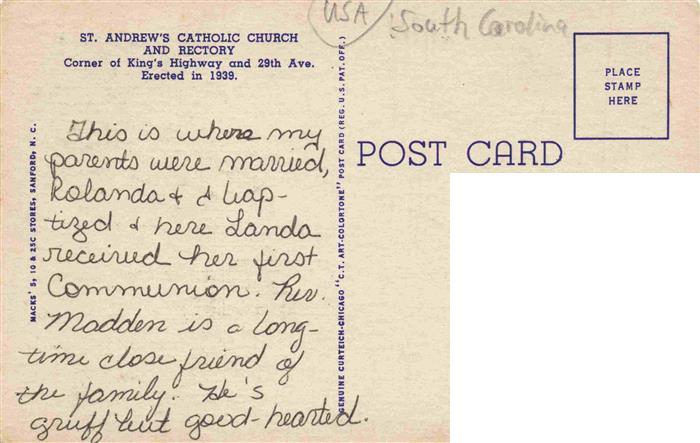 USA
South Carolina
ST. ANDREW'S CATHOLIC CHURCH
AND RECTORY
Corner of King's Highway and 29th Ave.
Erected in 1939.
This is where my
parents were married,
Rolanda & I bap-
tized & here Landa
received her first
Communion. Rev.
Madden is a long-
time close friend of
the family. He's
gruff but good-hearted.
MACKS' 5, 10 & 25C STORES, SANFORD, N. C.
GENUINE CURTEICH-CHICAGO "C.T. ART-COLORTONE" POST CARD (REG. U.S. PAT. OFF.)
POST CARD
PLACE
STAMP
HERE